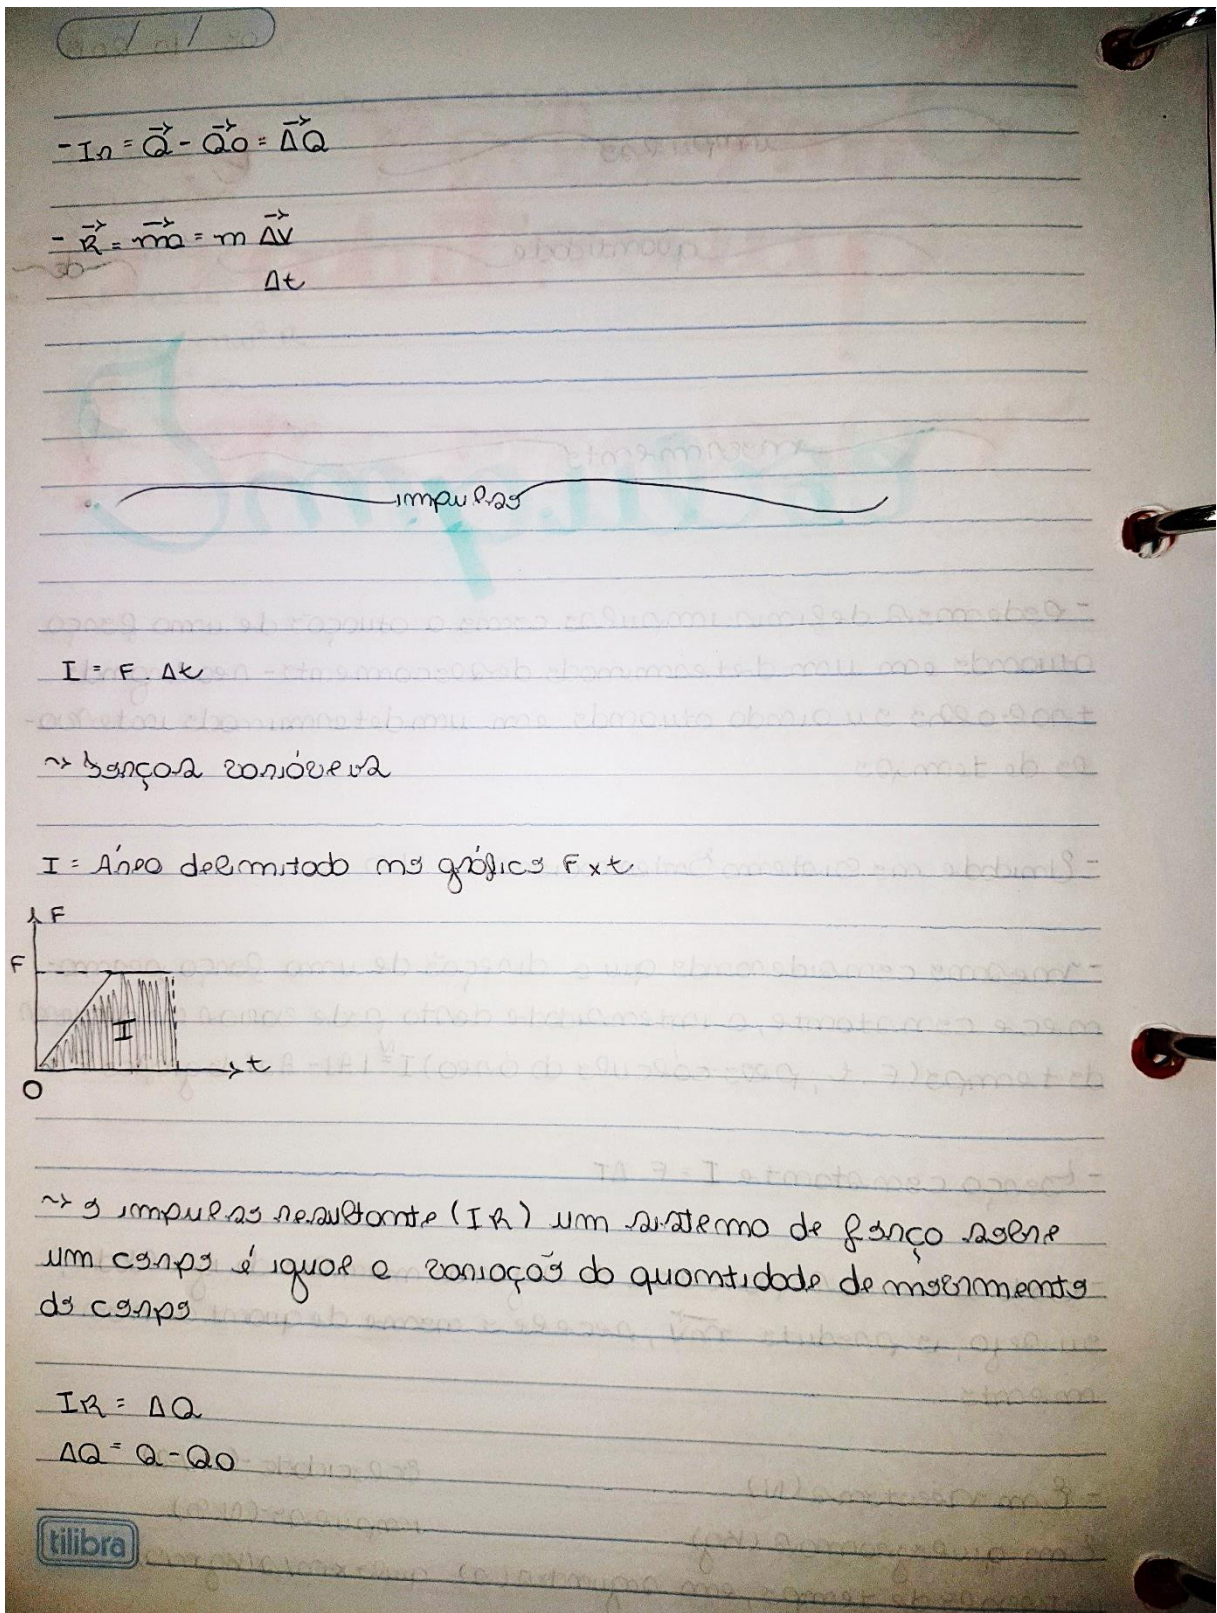 - In = Q⃗ - Q⃗o = ΔQ⃗
- R⃗ = ma⃗ = m ΔV⃗
Δt
impulso
I = F . Δt
~> forças variáveis
I = Área delimitada no gráfico F x t
F
F
I
t
O
~> o impulso resultante (IR) um sistema de força sobre
um corpo é igual a variação da quantidade de movimento
do corpo
IR = ΔQ
ΔQ = Q - Qo
tilibra